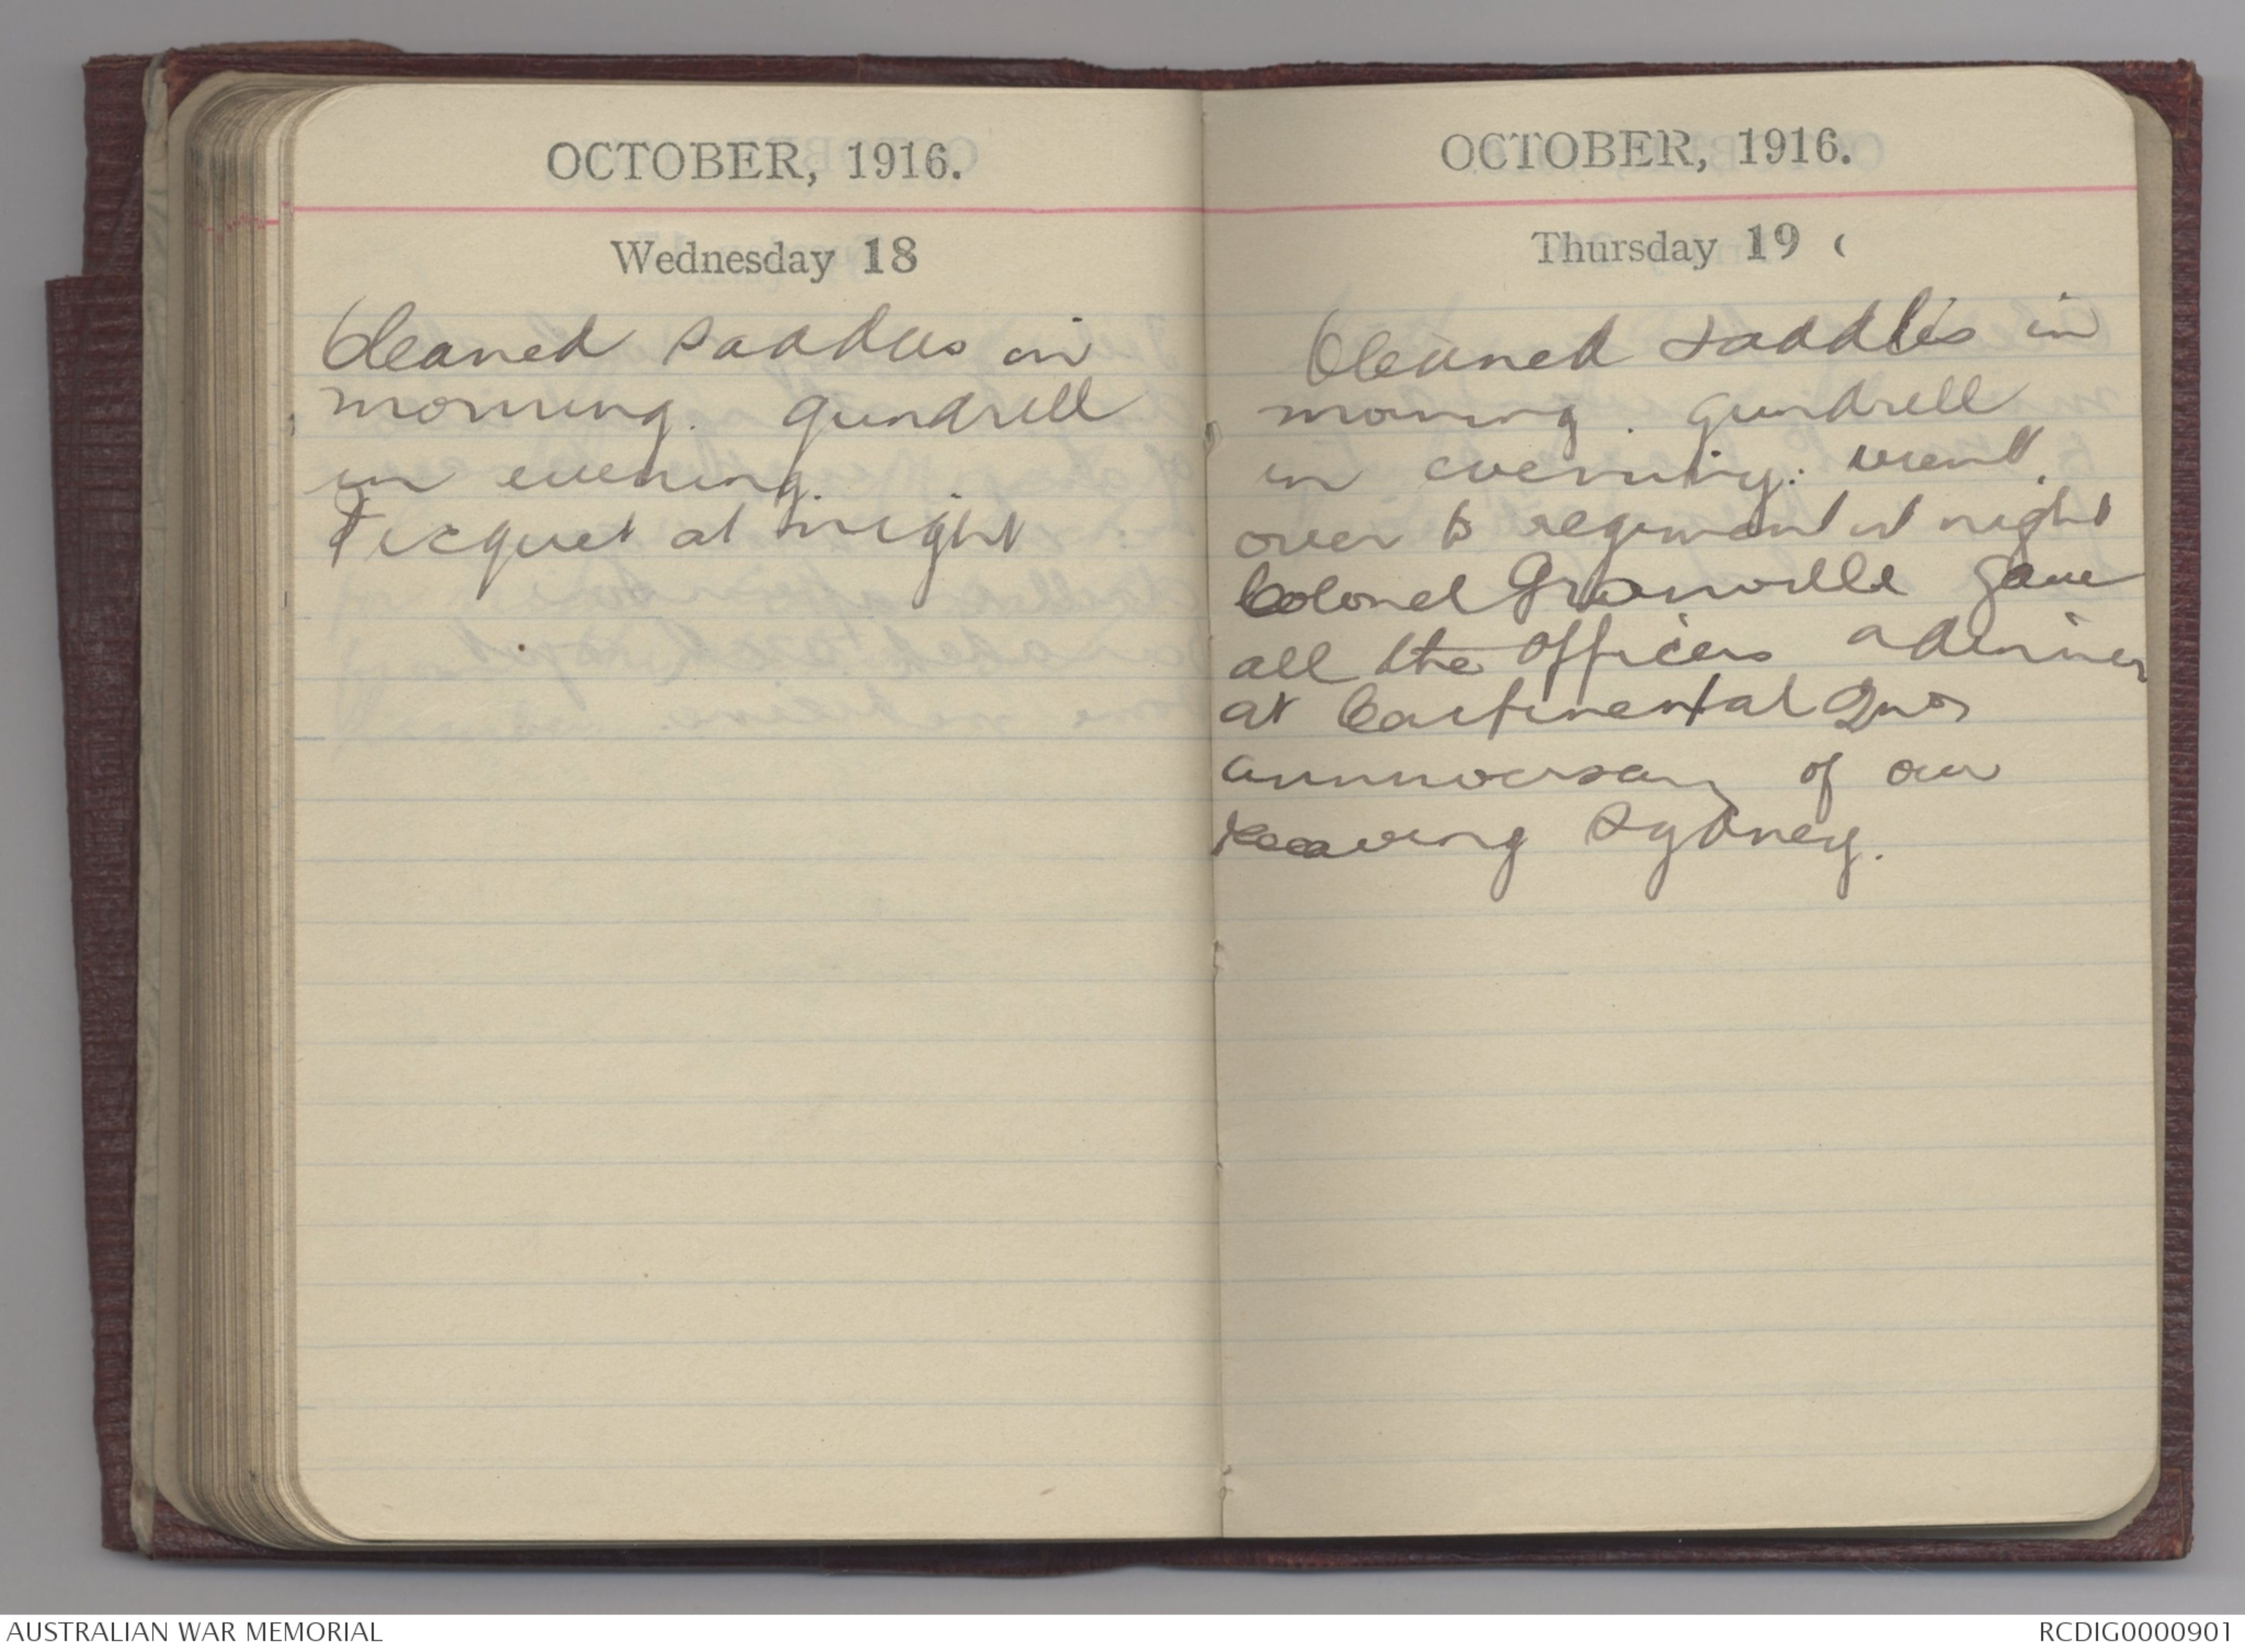 OCTOBER, 1916.
Wednesday 18
Cleaned saddles in
morning. gundrell
in evening.
Picquet at night
OCTOBER, 1916.
Thursday 19
Cleaned saddles in
morning. gundrell
in evening. went
over to regiment at night
Colonel Granville gave
all the officers a dinner
at Continental 2nd
anniversary of our
leaving Sydney.
AUSTRALIAN WAR MEMORIAL
RCDIG0000901